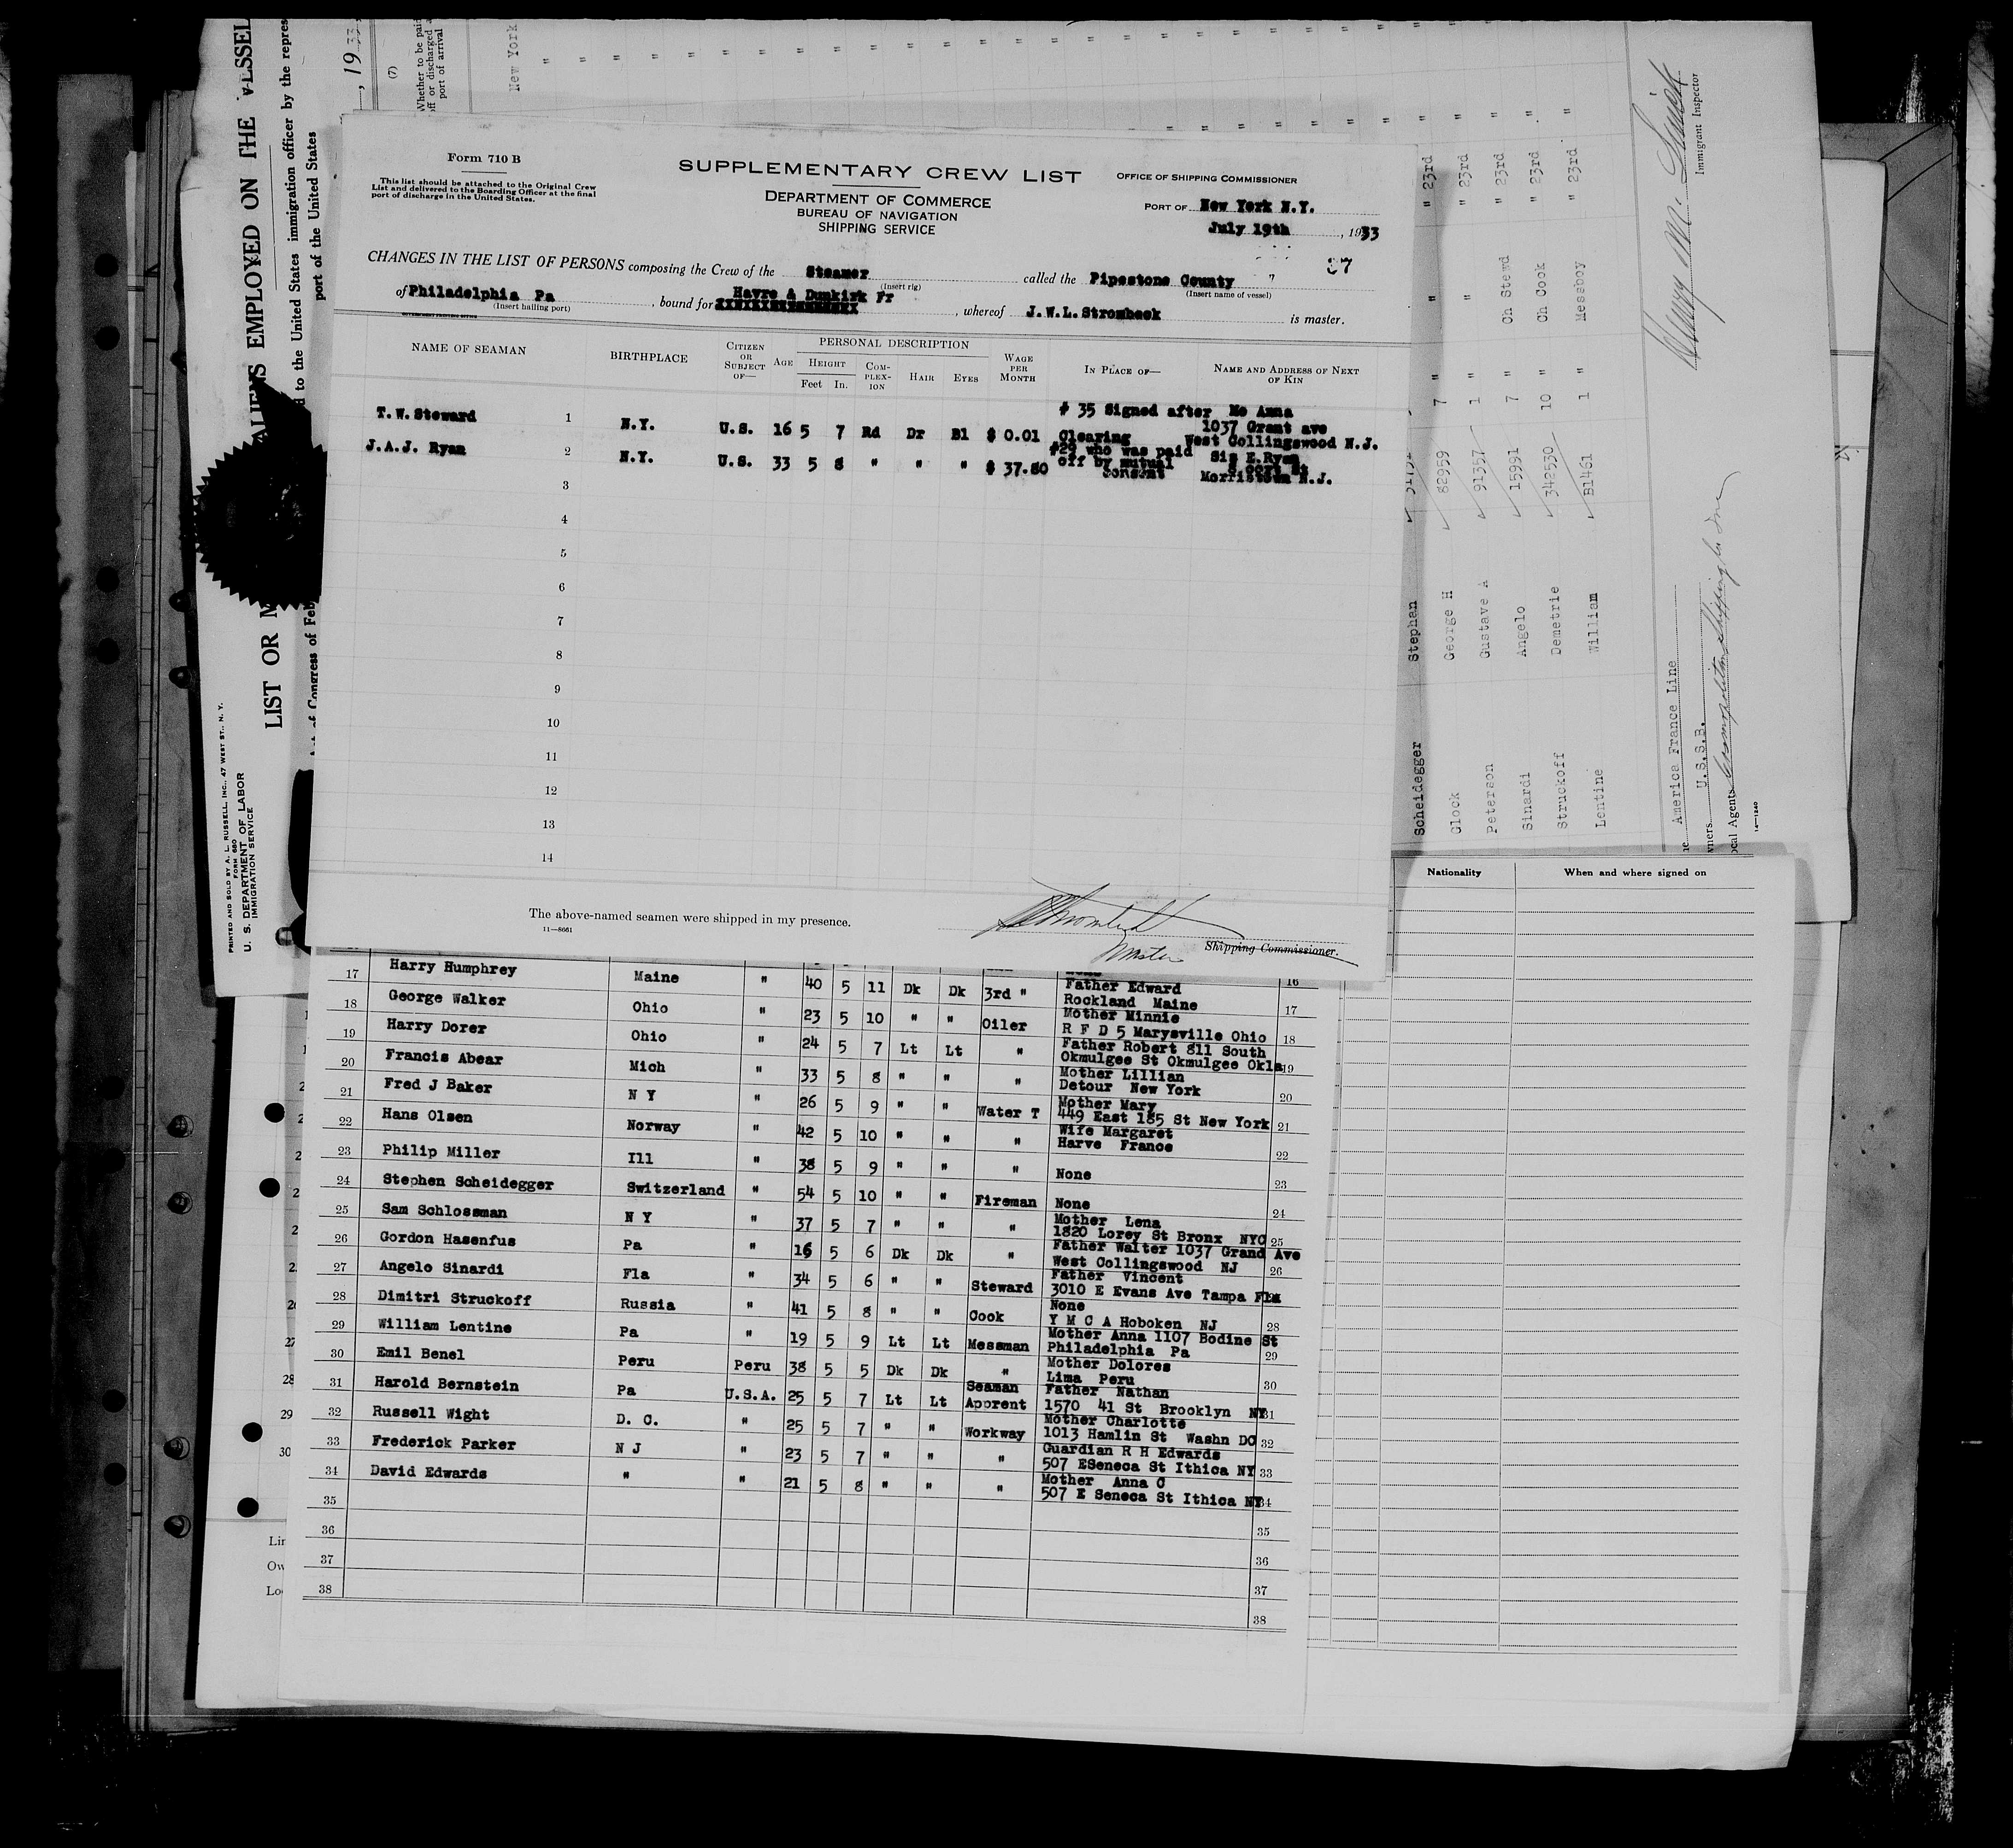 Form 710 B
This list should be attached to the Original Crew
List and delivered to the Boarding Officer at the final
port of discharge in the United States.
SUPPLEMENTARY CREW LIST
DEPARTMENT OF COMMERCE
BUREAU OF NAVIGATION
SHIPPING SERVICE
OFFICE OF SHIPPING COMMISSIONER
PORT OF New York N.Y.
July 19th, 1933
37
CHANGES IN THE LIST OF PERSONS composing the Crew of the Steamer called the Pipestone County "
(Insert rig) (Insert name of vessel)
of Philadelphia Pa, bound for Havre & Dunkirk Fr, whereof J.W.L.Strombeck is master.
(Insert hailing port)
GOVERNMENT PRINTING OFFICE
NAME OF SEAMAN BIRTHPLACE CITIZEN OR SUBJECT OF— AGE PERSONAL DESCRIPTION HEIGHT Feet In. COMPLEXION HAIR EYES WAGE PER MONTH IN PLACE OF— NAME AND ADDRESS OF NEXT OF KIN
T.W.Steward 1 N.Y. U.S. 16 5 7 Rd Dr Bl $ 0.01 # 35 Signed after Clearing Mo Anna 1037 Grant ave West Collingswood N.J.
J.A.J. Ryan 2 N.Y. U.S. 33 5 8 " " " $ 37.80 #29 who was paid off by mutual consent Sis E.Ryan St Morristown N.J.
3
4
5
6
7
8
9
10
11
12
13
14
The above-named seamen were shipped in my presence.
11—8661
Master
Shipping Commissioner.
17 Harry Humphrey Maine " 40 5 11 Dk Dk 3rd " Father Edward Rockland Maine 16
18 George Walker Ohio " 23 5 10 " " Oiler Mother Minnie R F D 5 Marysville Ohio 17
19 Harry Dorer Ohio " 24 5 7 Lt Lt " Father Robert 811 South Okmulgee St Okmulgee Okla 18
20 Francis Abear Mich " 33 5 8 " " " Mother Lillian Detour New York 19
21 Fred J Baker N Y " 26 5 9 " " Water T Mother Mary 449 East 185 St New York 20
22 Hans Olsen Norway " 42 5 10 " " " Wife Margaret Harve France 21
23 Philip Miller Ill " 38 5 9 " " " None 22
24 Stephen Scheidegger Switzerland " 54 5 10 " " Fireman None 23
25 Sam Schlossman N Y " 37 5 7 " " " Mother Lena 1820 Lorey St Bronx NYC 24
26 Gordon Hasenfus Pa " 16 5 6 Dk Dk " Father Walter 1037 Grand Ave West Collingswood NJ 25
27 Angelo Sinardi Fla " 34 5 6 " " Steward Father Vincent 3010 E Evans Ave Tampa Fla 26
28 Dimitri Struckoff Russia " 41 5 8 " " Cook None Y M C A Hoboken NJ
29 William Lentine Pa " 19 5 9 Lt Lt Messman Mother Anna 1107 Bodine St Philadelphia Pa 28
30 Emil Benel Peru Peru 38 5 5 Dk Dk " Mother Dolores Lima Peru 29
31 Harold Bernstein Pa U.S.A. 25 5 7 Lt Lt Seaman Apprent Father Nathan 1570 41 St Brooklyn NY 30
32 Russell Wight D. C. " 25 5 7 " " Workway Mother Charlotte 1013 Hamlin St Washn DC 31
33 Frederick Parker N J " 23 5 7 " " " Guardian R H Edwards 507 ESeneca St Ithica NY 32
34 David Edwards " " 21 5 8 " " " Mother Anna C 507 E Seneca St Ithica NY 33
35 34
36 35
37 36
38 37
38
Nationality When and where signed on
27
28
29
30
Lin
Ow
Lo
PRINTED AND SOLD BY A. L. RUSSELL, INC., 47 WEST ST., N. Y.
FORM 680
U. S. DEPARTMENT OF LABOR
IMMIGRATION SERVICE
LIST OR
ALIENS EMPLOYED ON THE VESSEL
to the United States immigration officer by the repres
port of the United States
Act of Congress of Feb
, 1933
(7)
Whether to be paid
off or discharged
port of arrival
New York
Scheidegger Stephan
Glock George H 82959 7 " " " 23rd "
Peterson Gustave A 91357 1 " " " 23rd "
Sinardi Angelo 15991 7 " Ch Stewd " 23rd "
Struckoff Demetrie 342530 10 " Ch Cook " 23rd "
Lentine William B1461 1 " Messboy " 23rd "
America France Line
U.S.S.B.
Local Agents Cosmopolitan Shipping Co Inc
14—1240
Immigrant Inspector